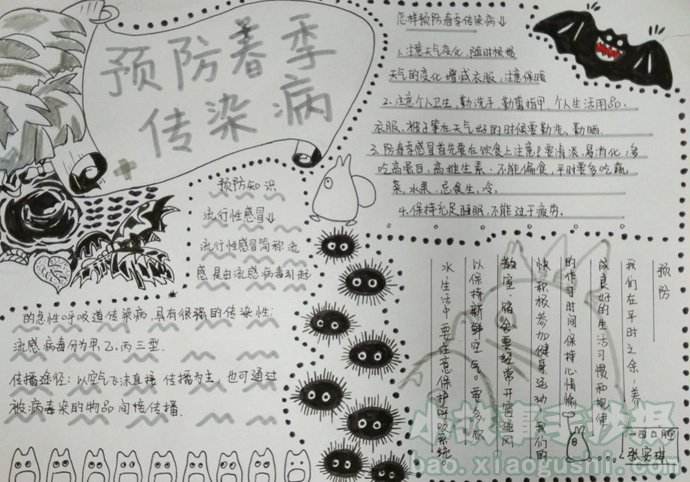 预防春季
传染病
怎样预防春季传染病
1.注意天气变化,随时候增
天气的变化增减衣服,注意保暖
2.注意个人卫生,勤洗手,勤剪指甲,个人生活用品、
衣服、被子要在天气好的时候要勤洗、勤晒
3.防春季感冒首先要在饮食上注意,要清淡、易消化,多
吃高蛋白、高维生素、不能偏食,平时要多吃蔬
菜、水果、忌食生、冷。
4.保持充足睡眠,不能过于疲劳。
预防知识
流行性感冒
流行性感冒简称流
感是由流感病毒引起
的急性呼吸道传染病,具有很强的传染性;
流感病毒分为甲、乙、丙三型.
传播途径:以空气飞沫直接传播为主,也可通过
被病毒染的物品间传播.
预防
我们在平时之余,养
成良好的生活习惯和规律
的作息时间保持心情愉
快积极参加健身运动我们的
教室、宿舍要经常开窗通风
以保持新鲜空气。要多喝
水生活中要注意保护呼吸系统
小故事手抄报
bao.xiaogushi.com